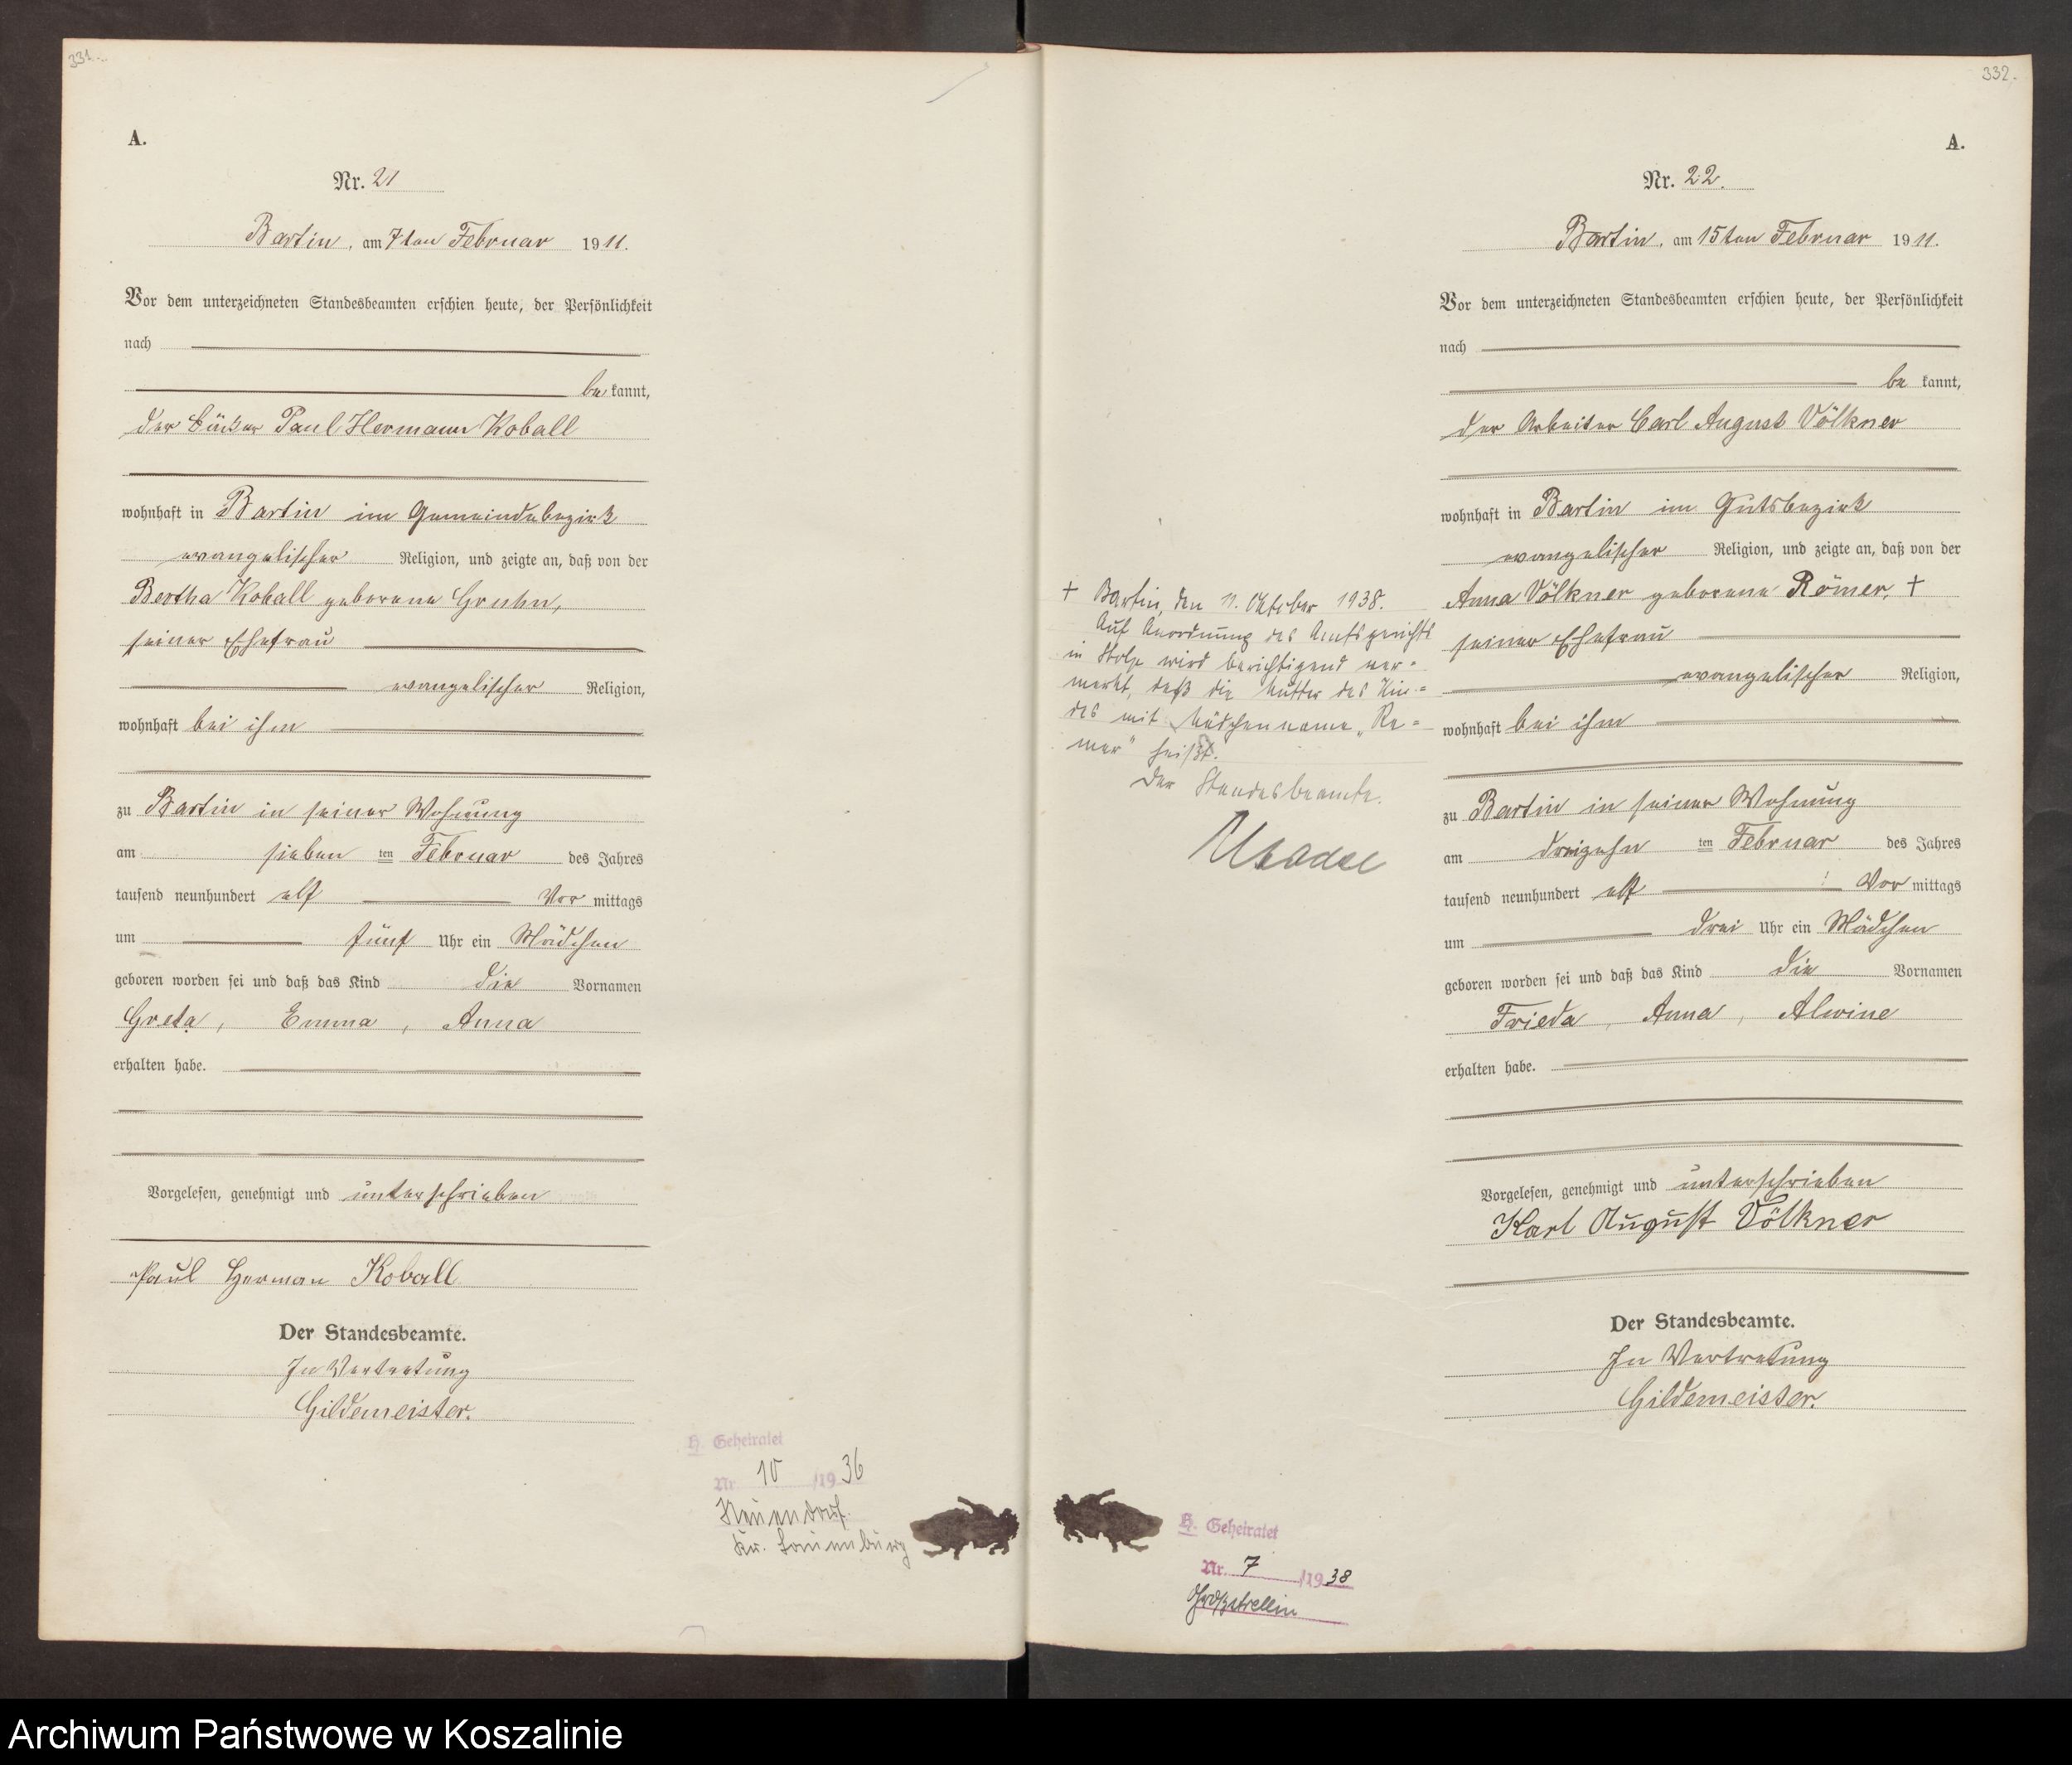 331.
A.
Nr. 21
Bartin, am 7ten Februar 1911.
Vor dem unterzeichneten Standesbeamten erschien heute, der Persönlichkeit
nach
be kannt,
der Paul Hermann Koball
wohnhaft in Bartin im Gemeindebezirk
evangelischer Religion, und zeigte an, daß von der
Bertha Koball geborene Gruhn,
seiner Ehefrau
evangelischer Religion,
wohnhaft bei ihm
zu Bartin in seiner Wohnung
am sieben ten Februar des Jahres
tausend neunhundert elf Vor mittags
um fünf Uhr ein Mädchen
geboren worden sei und daß das Kind die Vornamen
Greta, Emma, Anna
erhalten habe.
Vorgelesen, genehmigt und unterschrieben
Paul Herman Koball
Der Standesbeamte.
In Vertretung
Gildemeister.
H. Geheiratet
Nr. 10 /19 36
Neuendorf
Kr. Lauenburg
332.
A.
Nr. 22.
Bartin, am 15ten Februar 1911.
Vor dem unterzeichneten Standesbeamten erschien heute, der Persönlichkeit
nach
be kannt,
der Arbeiter Carl August Völkner
wohnhaft in Bartin im Gutsbezirk
evangelischer Religion, und zeigte an, daß von der
Anna Völkner geborene Römer, +
seiner Ehefrau
evangelischer Religion,
wohnhaft bei ihm
zu Bartin in seiner Wohnung
am dreizehn ten Februar des Jahres
tausend neunhundert elf Vor mittags
um drei Uhr ein Mädchen
geboren worden sei und daß das Kind die Vornamen
Frieda, Anna, Alwine
erhalten habe.
Vorgelesen, genehmigt und unterschrieben
Karl August Völkner
Der Standesbeamte.
In Vertretung
Gildemeister.
+ Bartin, den 11. Oktober 1938.
Auf Anordnung des Amtsgerichts
in Stolp wird berichtigend ver-
merkt, daß die Mutter des Kin-
des mit Mädchenname „Re-
mer" heißt.
Der Standesbeamte.
H. Geheiratet
Nr. 7 /19 38
Großstrellin
Archiwum Państwowe w Koszalinie